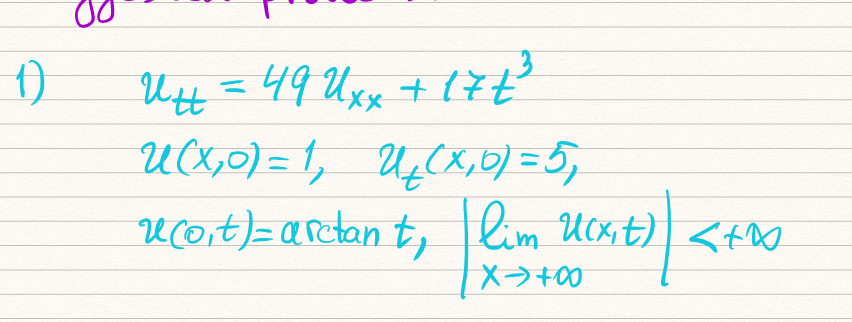 1) u_tt = 49 u_xx + 17t^3
u(x,0) = 1, u_t(x,0) = 5,
u(0,t) = arctan t, |lim_{x→+∞} u(x,t)| < +∞